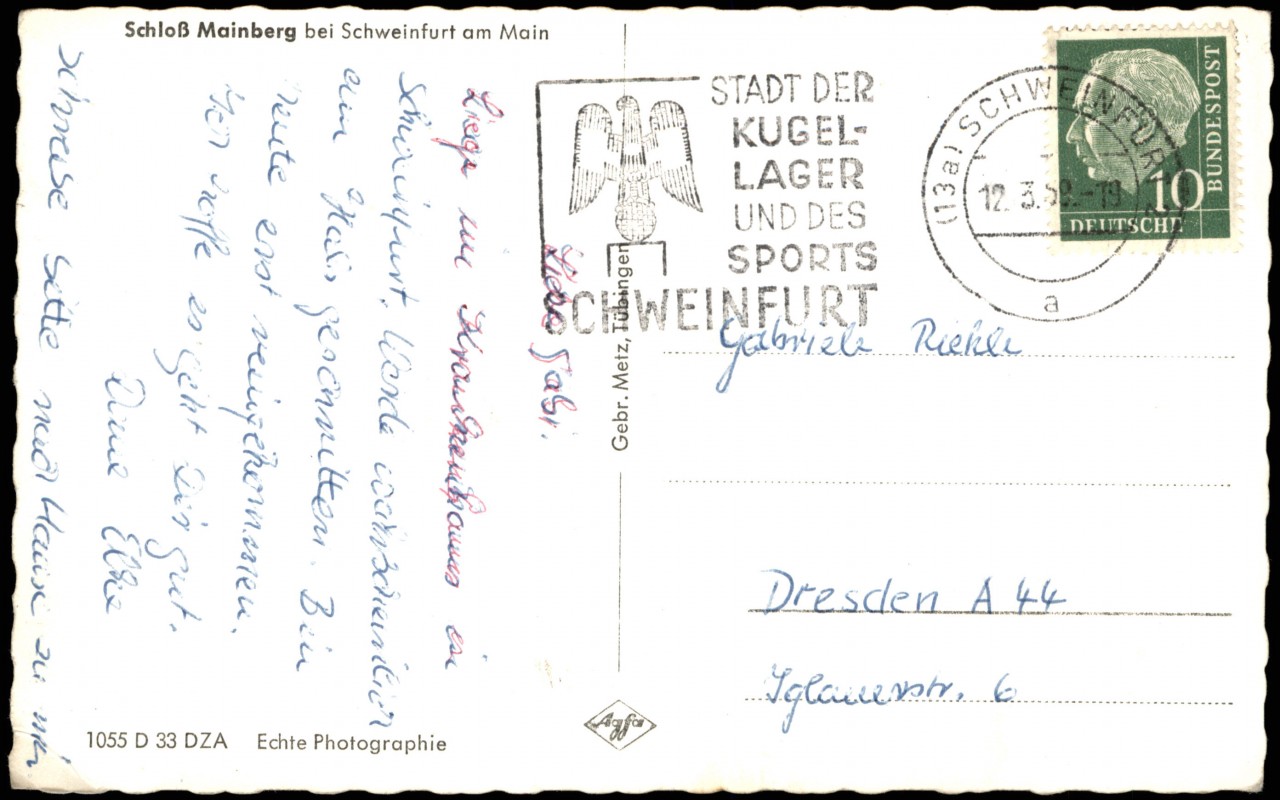 Schloß Mainberg bei Schweinfurt am Main
STADT DER
KUGEL-
LAGER
UND DES
SPORTS
SCHWEINFURT
(13a) SCHWEINFURT 2
12. 3. 58.-19
a
10
DEUTSCHE
BUNDESPOST
Liebe Gabi.
Liege im Krankenhaus in
Schweinfurt. Werde warscheinlich
ein Hals geschnitten. Bin
heute erst reingekommen.
Ich hoffe es geht Dir gut.
Deine Elke
schreibe bitte nach Hause zu mir
Gebr. Metz, Tübingen
Gabriele Riehle
Dresden A 44
Iglauerstr. 6
1055 D 33 DZA Echte Photographie
Agfa